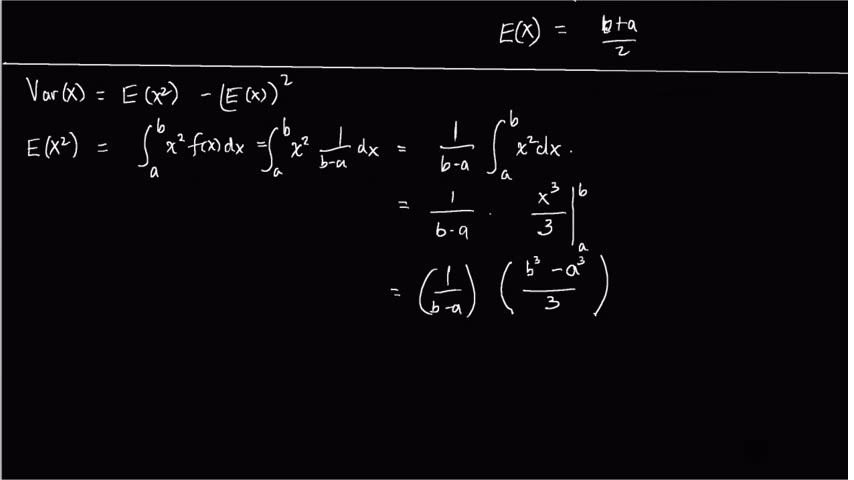 E(X) = b+a/2
Var(X) = E(X²) - (E(X))²
E(X²) = ∫ₐᵇ x² f(x) dx = ∫ₐᵇ x² 1/(b-a) dx = 1/(b-a) ∫ₐᵇ x² dx.
= 1/(b-a) · x³/3 |ₐᵇ
= (1/(b-a)) ((b³ - a³)/3)